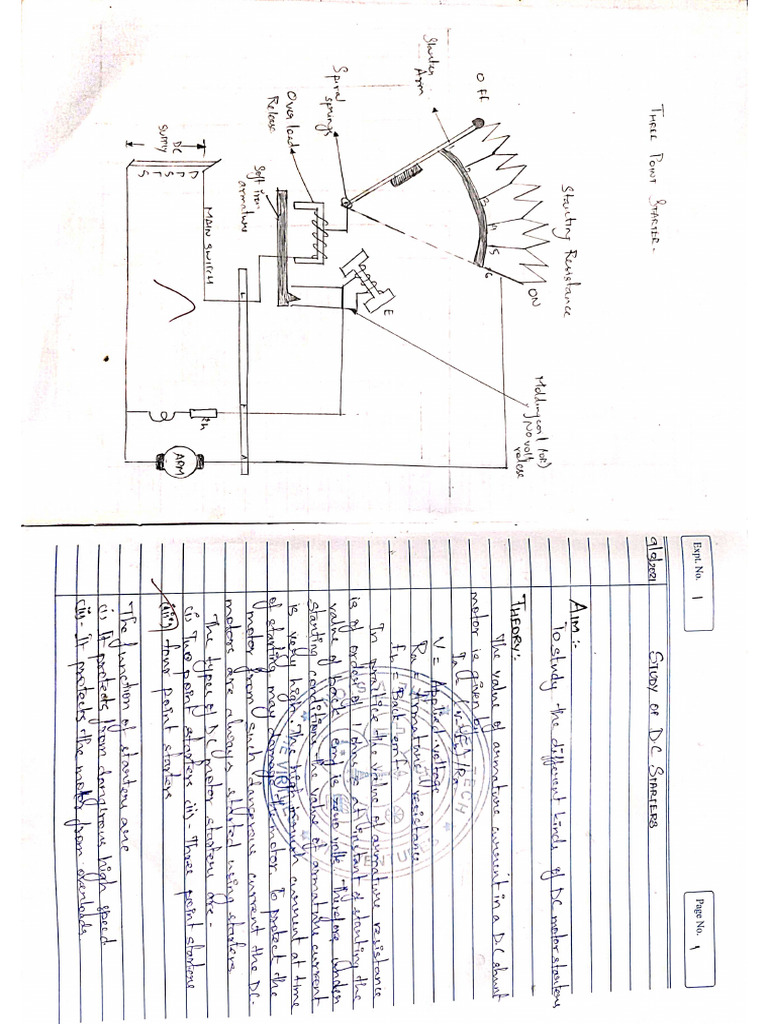 THREE POINT STARTER.
Starting Resistance
OFF
ON
1
2
3
4
5
6
Starter
Arm
Spiral
springs
Over load
Release
Soft iron
armature
E
Holding coil (or)
No volt
release
MAIN SWITCH
DC
SUPPLY
D
P
S
T
S
L
F
A
Rh
ARM
Expt. No. 1
Page No. 1
STUDY OF DC. STARTERS
AIM :-
To study the different kinds of DC motor starters
THEORY:-
The value of armature current in a DC shunt
motor is given by
Ia = (V-Eb)/Ra
V = Applied voltage
Ra = Armature resistance
Eb = Back emf
In practice the value of armature resistance
is of order of 1 ohms at instant of starting the
value of back emf is zero volt therefore under
starting conditions the value of armature current
is very high. This high inrush current at time
of starting may damage the motor. To protect the
motor from such dangerous current the DC.
motors are always started using starters
The types of DC motor starters are -
(i) Two point starters (ii) - Three point starters
(iii) four point starters
The function of starters are
(i) It protects from dangerous high speed
(ii) - It protects the motor from overloads